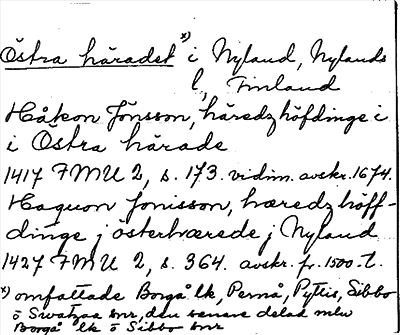 Östra häradet x) i Nyland, Nylands
l, Finland
Håkon Jönsson, häredzhöfdinge i
i Östra härade
1417 FMU 2, s. 173. vidim. avskr. 1674.
Haquon Jonisson, hæredzhöff-
dinge j österhærede j Nyland
1427 FMU 2, s. 364. avskr. fr. 1500-t.
x) omfattade Borgå lk, Pernå, Pyttis, Sibbo
o snr, den senare delad mlu
Borgå lk o Sibbo snr